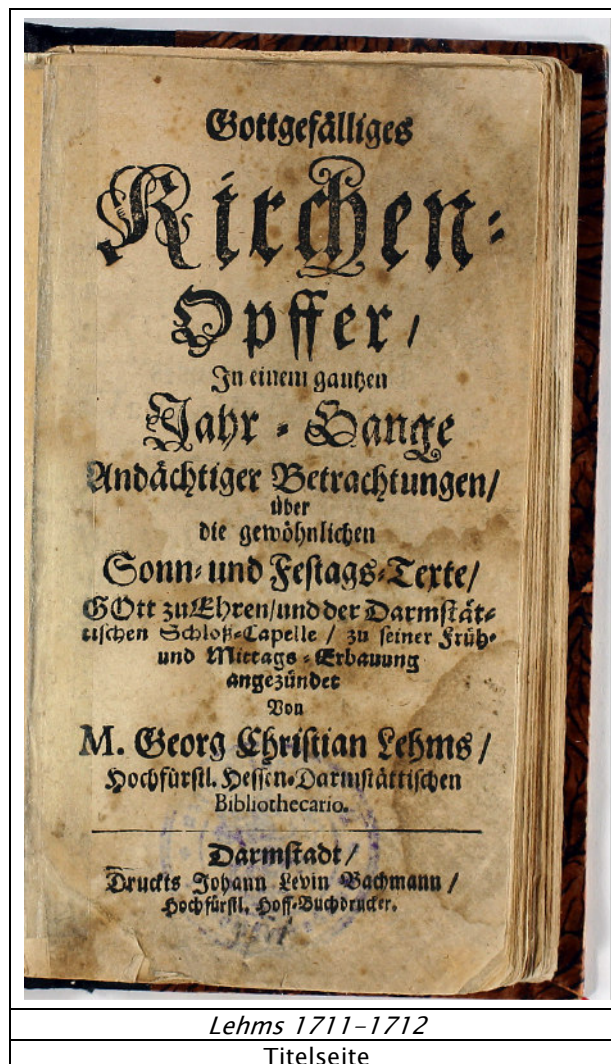 Gottgefälliges
Kirchen-
Opffer/
In einem gantzen
Jahr-Gange
Andächtiger Betrachtungen/
über
die gewöhnlichen
Sonn- und Festags-Texte/
GOtt zu Ehren/und der Darmstät-
tischen Schloß-Capelle / zu seiner Früh-
und Mittags-Erbauung
angezündet
Von
M. Georg Christian Lehms /
Hochfürstl. Hessen-Darmstättischen
Bibliothecario.
Darmstadt/
Druckts Johann Levin Bachmann /
Hochfürstl. Hoff-Buchdrucker.
Lehms 1711-1712
Titelseite